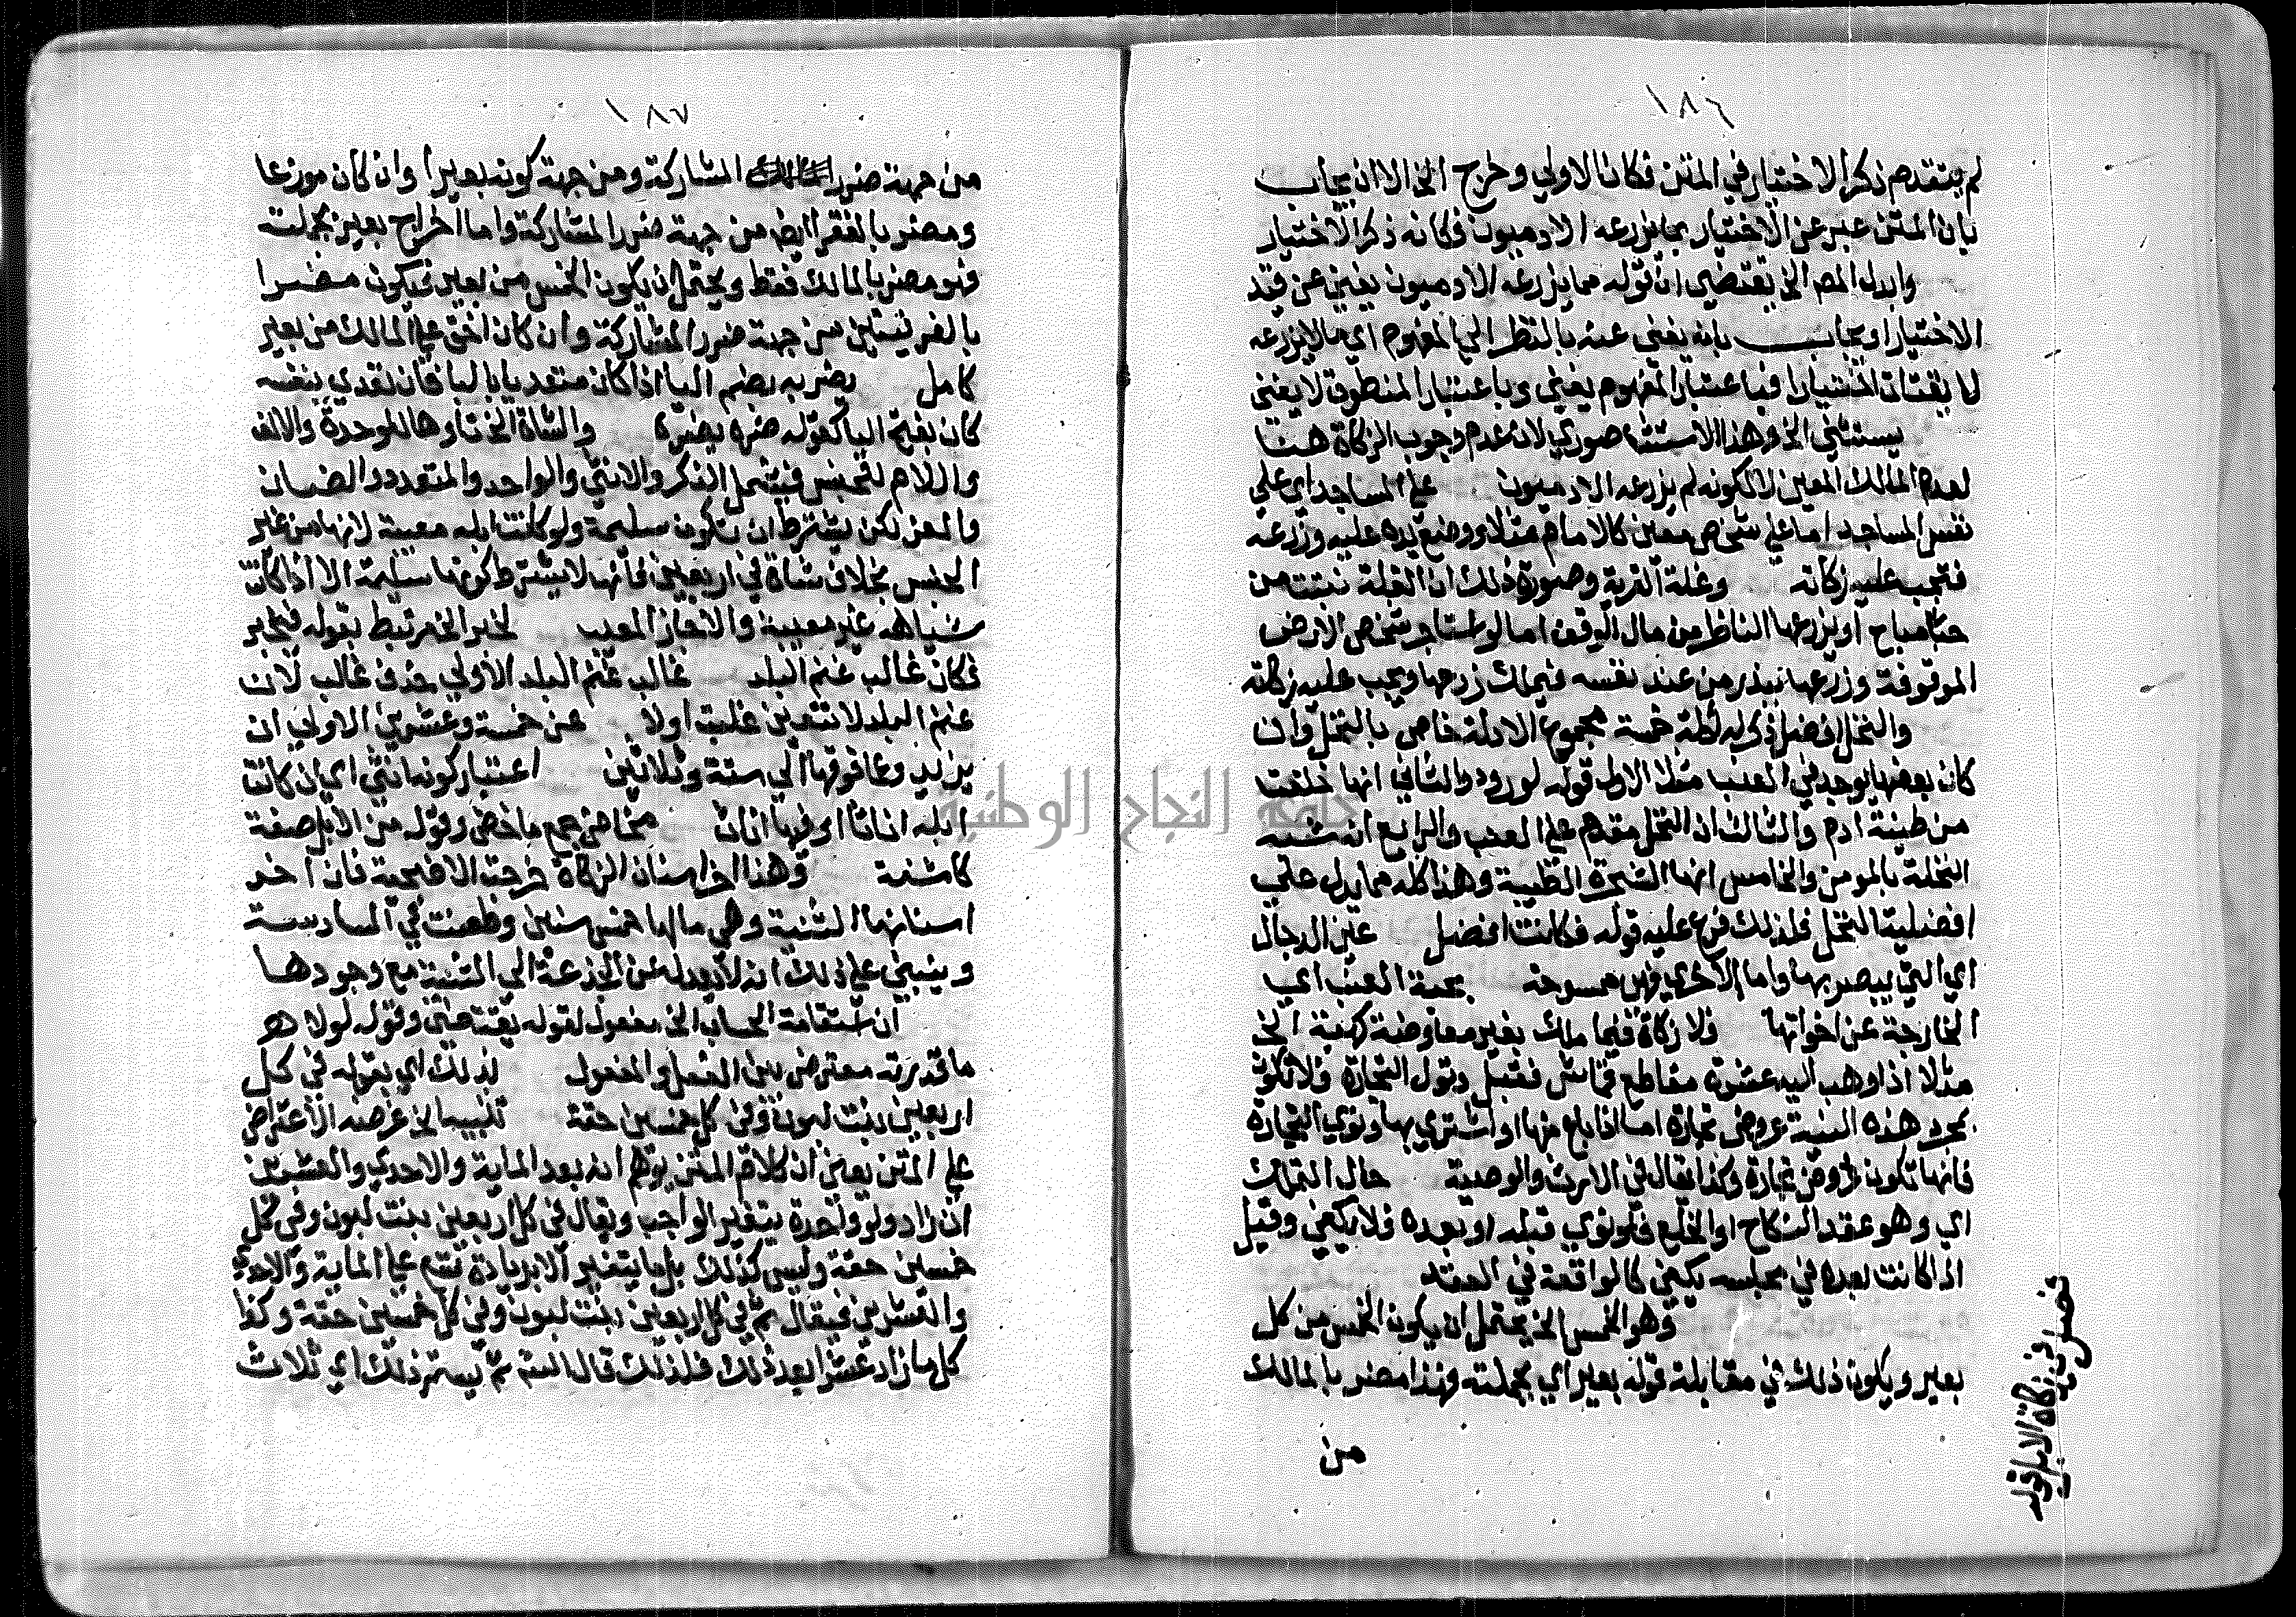 ١٨٦
لم يتقدم ذكر الاختيار في المتن فكان الاولي وخرج الخ الا ان يجاب
بان المتن عبر عن الاختيار بما يزرعه الادميون فكانه ذكر الاختيار
وابدل المص الخ يقتضي ان قوله مما يزرعه الادميون يغني عن قيد
الاختيار او يجاب بانه يغني عنه بالنظر الي المفهوم اي ما لا يزرعه
لا يقتات اختيارا فباعتبار المفهوم يغني وباعتبار المنطوق لا يغني
يستثني الخ وهذا الاستثنا صوري لان عدم وجوب الزكاة هنا
لعدم المالك المعين لا لكونه لم يزرعه الادميون علي المساجد اي علي
نفس المساجد اما علي شخص معين كالامام مثلا ووضع يده عليه وزرعه
فتجب عليه زكاته وغلة القرية وصورة ذلك ان الغلة نبتت من
حب مباح او يزرعها الناظر من مال الوقف اما لو استاجر شخص الارض
الموقوفة وزرعها ببذر من عند نفسه فيملك زرعها ويجب عليه زكاته
والنخل افضل ذكر له ادلة خمسة مجموع الادلة خاص بالنخل وان
كان بعضها يوجد في العنب مثلا الاول قوله لورود والثاني انها خلقت
من طينة ادم والثالث ان النخل مقدم علي العنب والرابع انه شبه
النخلة بالمومن والخامس انها الشجرة الطيبة وهذا كله مما يدل علي
افضلية النخل فلذلك فرع عليه قوله فكانت افضل عين الدجال
اي التي يبصر بها واما الاخري فهي ممسوحة بحبة العنب اي
الخارجة عن اخواتها ولا زكاة فيما ملك بغير معاوضة كهبة الخ
مثلا اذا وهب اليه عشرة مقاطع قماش فقبل ونوي التجارة فلا تكون
بمجرد هذه النية عروض تجارة اما اذا باع منها او اشتري بها ونوي التجارة
فانها تكون عروض تجارة وكذا يقال في الارث والوصية حال التملك
اي وهو عقد النكاح او الخلع فلو نوي قبله او بعده فلا يكفي وقيل
اذا كانت بعده في مجلسه يكفي كالواقعة في العقد
وهو الخمس الخ يحتمل ان يكون الخمس من كل
بعير ويكون ذلك في مقابلة قوله بعير اي بجملته وهذا مضر بالمالك
من
فصل في زكاة الابل قوله
١٨٧
من جهة ضرر المشاركة ومن جهة كونه بعيرا وان كان موزعا
ومضر بالفقرا ايض من جهة ضرر المشاركة واما اخراج بعير بجملته
فهو مضر بالمالك فقط ويحتمل ان يكون الخمس من بعير فيكون مضرا
بالفريقين من جهة ضرر المشاركة وان كان اخف علي المالك من بعير
كامل يضر به بضم اليا اذا كان متعديا بالبا فان تعدي بنفسه
كان بفتح اليا كقوله ضره يضره والشاة الخ تاوها للوحدة والالف
واللام للجنس فيشمل الذكر والانثي والواحد والمتعدد والضان
والمعز لكن يشترط ان تكون سليمة ولو كانت ابله معيبة لانها من غير
الجنس بخلاف شاة في اربعين فانها لا يشترط كونها سليمة الا اذا كانت
شياهه غير معيبة والا تجاز المعيب لخبر الخ مرتبط بقوله فتجابر
فكان غالب غنم البلد غالب غنم البلد الاولي حذف غالب لان
غنم البلد لا تتعين غلبت اولا عن خمسة وعشرين الاولي ان
يزيد وما فوقها الي ستة وثلاثين اعتبار كونه انثي اي ان كانت
ابله اناثا او فيها اناث مخاض جمع ماخض وقوله من الابل صفة
كاشفة وهذا اخر اسنان الزكاة خرجت الاضحية فان اخر
اسنانها الثنية وهي ما لها خمس سنين وطعنت في السادسة
وينبني علي ذلك انه لا يعدل عن الجذعة الي الثنية مع وجودها
ان استقامة الحساب الخ مفعول لقوله يقتضي وقوله لولا هو
ما قدرته معترض بين الفعل والمفعول لذلك اي بقوله في كل
اربعين بنت لبون وفي كل خمسين حقة تنبيه الخ غرضه الاعتراض
علي المتن يعني ان كلام المتن يوهم انه بعد الماية والاحدي والعشرين
ان زاد ولو واحدة يتغير الواجب ويقال في كل اربعين بنت لبون وفي كل
خمسين حقة وليس كذلك بل ما يتغير الا بزيادة تسع علي الماية والاحدي
والعشرين فيقال ثم في كل اربعين بنت لبون وفي كل خمسين حقة وكذا
كل ما زاد عشرا بعد ذلك فلذلك قال الش ثم يستمر ذلك اي ثلاث
جامعة النجاح الوطنية